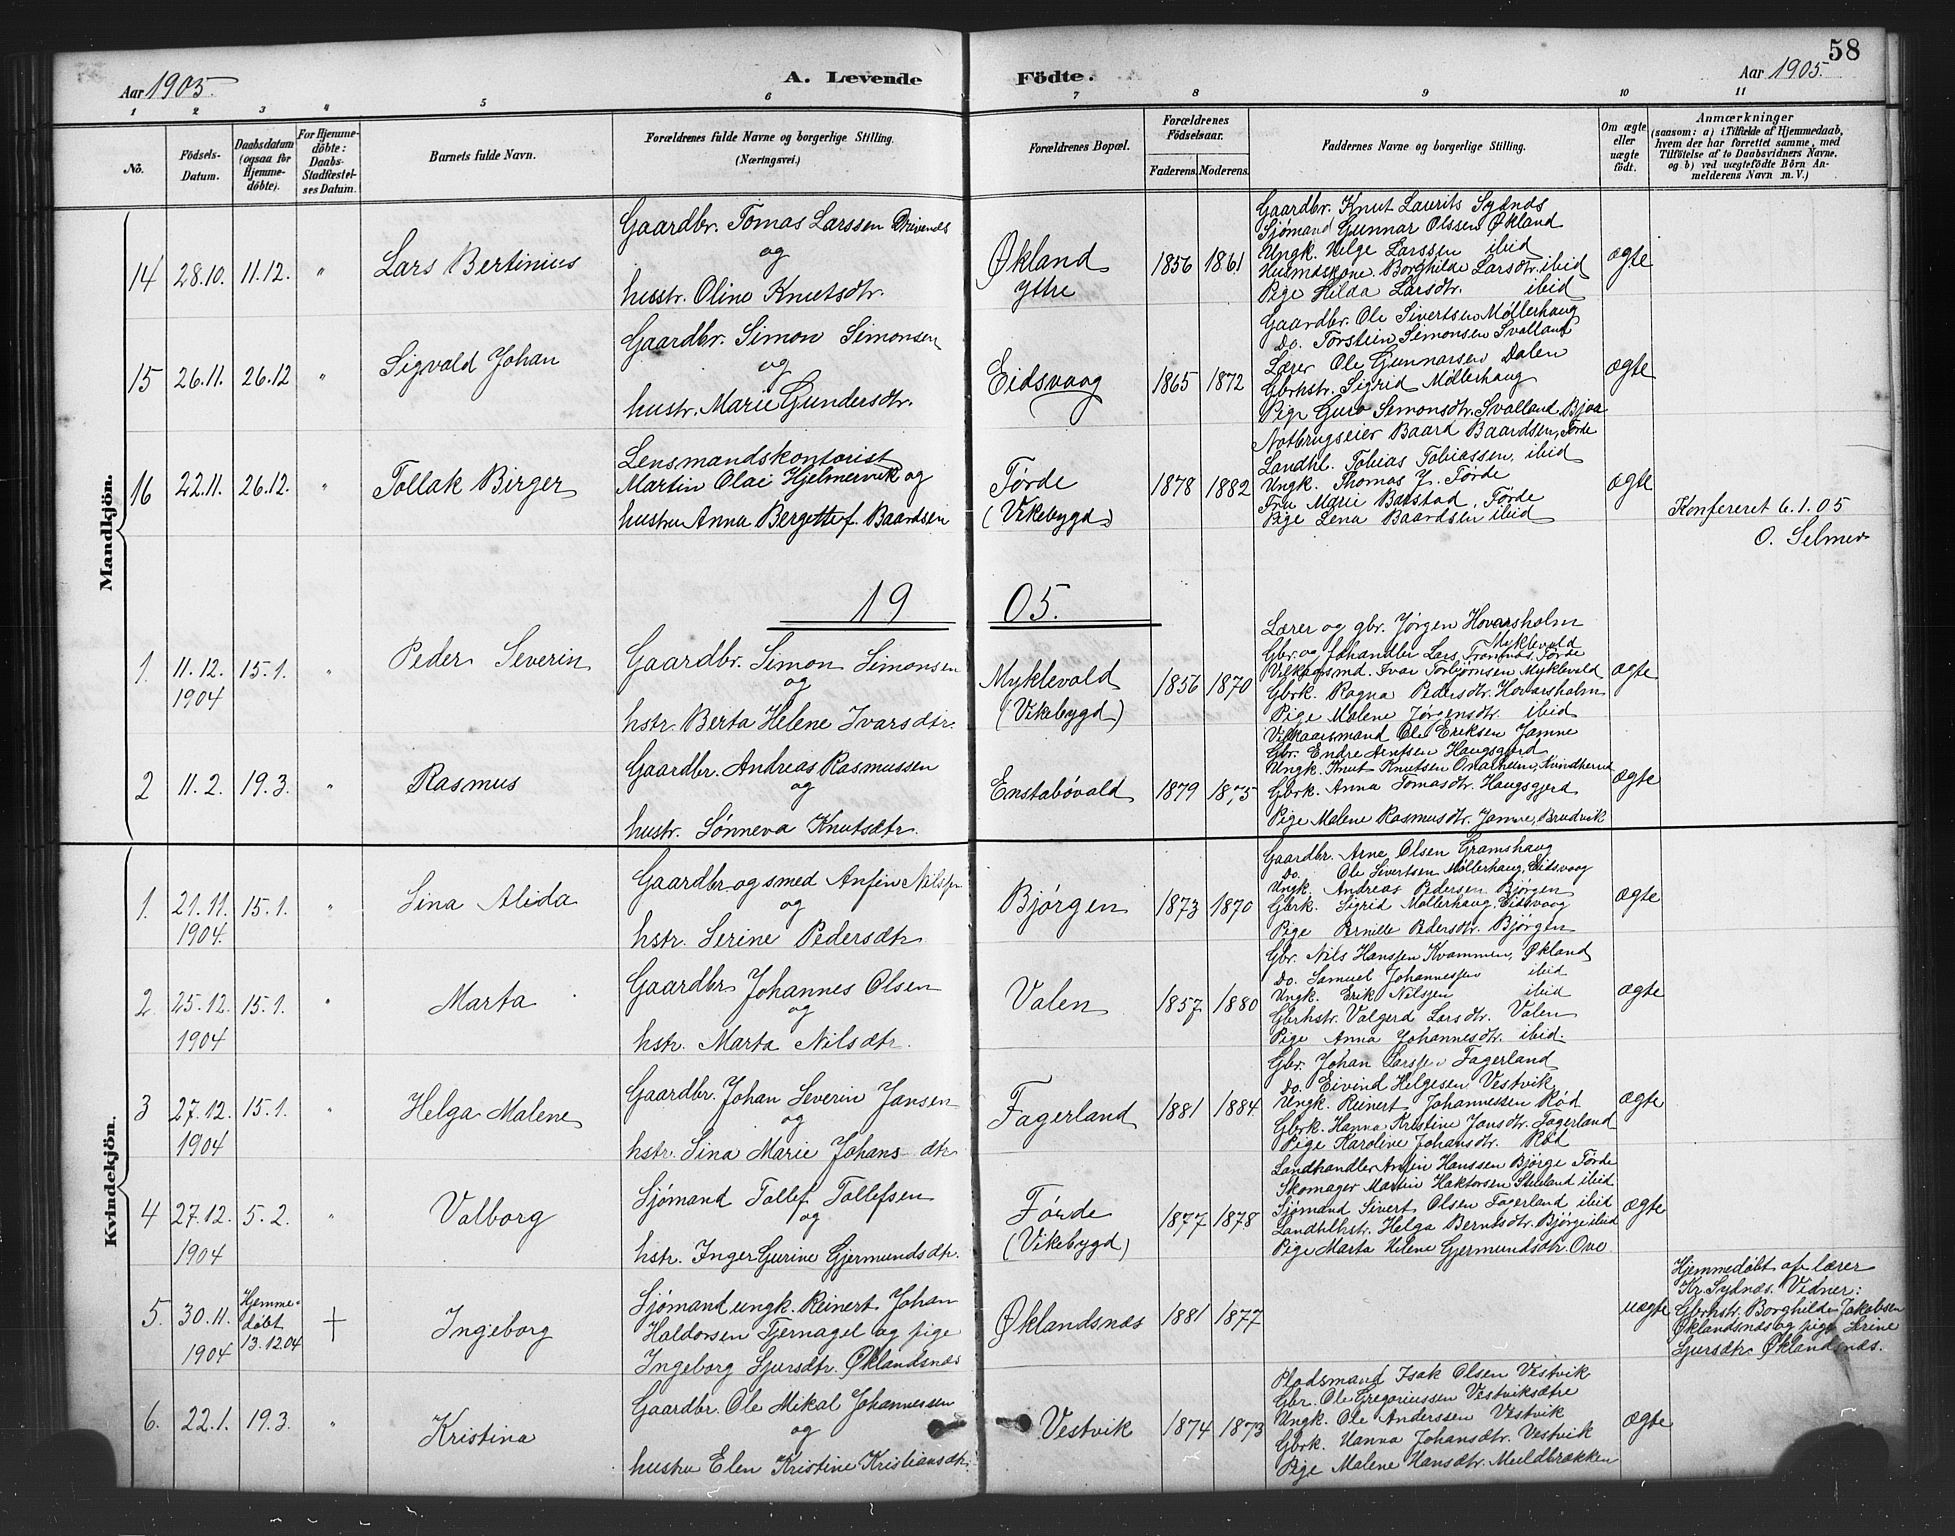 58
Aar 1905.
A. Levende Födte.
Aar 1905.
1 2 3 4 5 6 7 8 9 10 11
No.
Födsels-Datum.
Daabsdatum (ogsaa for Hjemme-döbte).
For Hjemme-döbte: Daabs-Stadfæstel-ses Datum.
Barnets fulde Navn.
Forældrenes fulde Navne og borgerlige Stilling. (Næringsvei.)
Forældrenes Bopæl.
Forældrenes Födselsaar.
Faderens. Moderens.
Faddernes Navne og borgerlige Stilling.
Om ægte eller uægte födt.
Anmærkninger
(saasom: a) i Tilfælde af Hjemmedaab,
hvem der har forrettet samme, med
Tilföielse af to Daabsvidners Navne,
og b) ved uægtefödte Börn An-
melderens Navn m. V.)
Mandkjön.
14 28.10. 11.12. " Lars Bertinius
Gaardbr. Tomas Larssen Drivenes
og
husstr. Oline Knutsdtr.
Økland
Ytre
1856 1861
Gaardbr. Knut Laurits Sydnæs
Sjømand Gunnar Olssen Økland
Ungk. Helge Larssen ibid
Husmdskone Borghilde Larsdtr. ibid
Pige Hilda Larsdtr. ibid
ægte
15 26.11. 26.12 " Sigvald Johan
Gaardbr. Simon Simonsen
og
hustr. Marie Gundersdtr.
Eidsvaag
1865 1872
Gaardbr. Ole Sivertsen Møllerhaug
Do. Torstein Simonsen Svalland
Lærer Ole Gunnarsen Dalen
Gbrhstr. Sigrid Møllerhaug
Pige Guro Simonsdtr. Svalland, Bjoa
ægte
16 22.11. 26.12. " Tollak Birger
Lensmandskontorist
Martin Olai Hjelmervik og
hustru Anna Bergette f. Baardsen
Førde
(Vikebygd)
1878 1882
Notbrugseier Baard Baardsen, Førde
Landhl. Tobias Tobiassen, ibid
Ungk. Thomas J. Førde
Fru Marie Baustad Førde
Pige Lena Baardsen ibid
ægte
Konfereret 6.1.05
O. Selmer
1905.
1 11.12. 1904 15.1. " Peder Severin
Gaardbr. Simon Simonsen
og
hstr. Berta Helene Ivarsdtr.
Myklevold
(Vikebygd)
1856 1870
Lærer og gbr. Jørgen Hovarsholm
Myklevold
Gbr. og lohandler Lars Førde
Vilkaarsmd. Ivar Torbjørnsen Myklevold
Gbrk. Ragna Pedersdtr. Hovarsholm
Pige Malene Jørgensdtr. ibid
ægte
2 11.2. 19.3. " Rasmus
Gaardbr. Andreas Rasmussen
og
hustr. Sønneva Knutsdtr.
Enstabøvold
1879 1875
Vilkaarsmand Ole Eriksen Jamne
Gbr. Endre Arntsen Haugsgjerd
Ungk. Knut Knutsen Onarheim, Kvindherred
Gbrk. Anna Tomasdtr. Haugsgjerd
Pige Malene Rasmusdtr. Jamne, Brudvik
ægte
Kvindekjön.
1. 21.11. 1904. 15.1. " Lina Alida
Gaardbr. og smed Anfin Nilsen
og
hstr. Serine Pedersdtr.
Bjørgen
1873 1870
Gaardbr. Arne Olsen Gramshaug
Do. Ole Sivertsen Møllerhaug, Eidsvaag
Ungk. Andreas Pedersen Bjørgen
Gbrk. Sigrid Møllerhaug, Eidsvaag
Pige Pernille Pedersdtr. Bjørgen
ægte
2 25.12. 1904 15.1. " Marta
Gaardbr. Johannes Olsen
og
hstr. Marta Nilsdtr.
Valen
1857 1880
Gbr. Nils Hanssen Kvammen, Økland
Do. Samuel Johannessen ibid
Ungk. Erik Nilssen ibid
Gbrhstr. Valgerd Larsdtr. Valen
Pige Anna Johannesdtr. ibid.
ægte
3 27.12. 1904 15.1. " Helga Malene
Gaardbr. Johan Severin Jansen
og
hstr. Lina Marie Johansdtr.
Fagerland
1881 1884
Gbr. Johan Larssen Fagerland
Do. Eivind Helgesen Vestvik
Ungk. Reinert Johannessen Rød
Gbrk. Hanna Kristine Jansdtr. Fagerland
Pige Karoline Johansdtr. Rød
ægte
4 27.12. 1904 5.2. " Valborg
Sjømand Tollef Tollefsen
og
hstr. Inger Gurine Gjermundsdtr.
Førde
(Vikebygd)
1877 1878
Landhandler Anfin Hanssen Bjørge Førde
Skomager Martin Haktorsen Stueland ibid
Sjømand Sivert Olsen Fagerland ibid
Landhlhstr. Helga Berntsdtr. Bjørge ibid
Pige Marta Helene Gjermundsdtr. Ove
ægte
5. 30.11. 1904 Hjemme-døbt 13.12.04 + Ingeborg
Sjømand ungk. Reinert Johan
Haldorsen Tjernagel og pige
Ingeborg Sjursdtr. Øklandsnæs
Øklandsnæs
1881 1877
uægte
Hjemmedøbt af lærer
Kr. Sydnæs. Vidner:
Gbrhstr. Borghilde Jakobsen
Øklandsnæs og pige Serine
Sjursdtr. Øklandsnæs.
6. 22.1. 19.3. " Kristina
Gaardbr. Ole Mikal Johannessen
og
hustru Elen Kristine Kristiansdtr.
Vestvik
1874 1873
Plodsmand Isak Olsen Vestvik
Gbr. Ole Gregoriussen Vestviksætre
Ungk. Ole Anderssen Vestvik
Gbrk. Hanna Johansdtr. Vestvik
Pige Malene Hansdtr. Muldbrækken
ægte